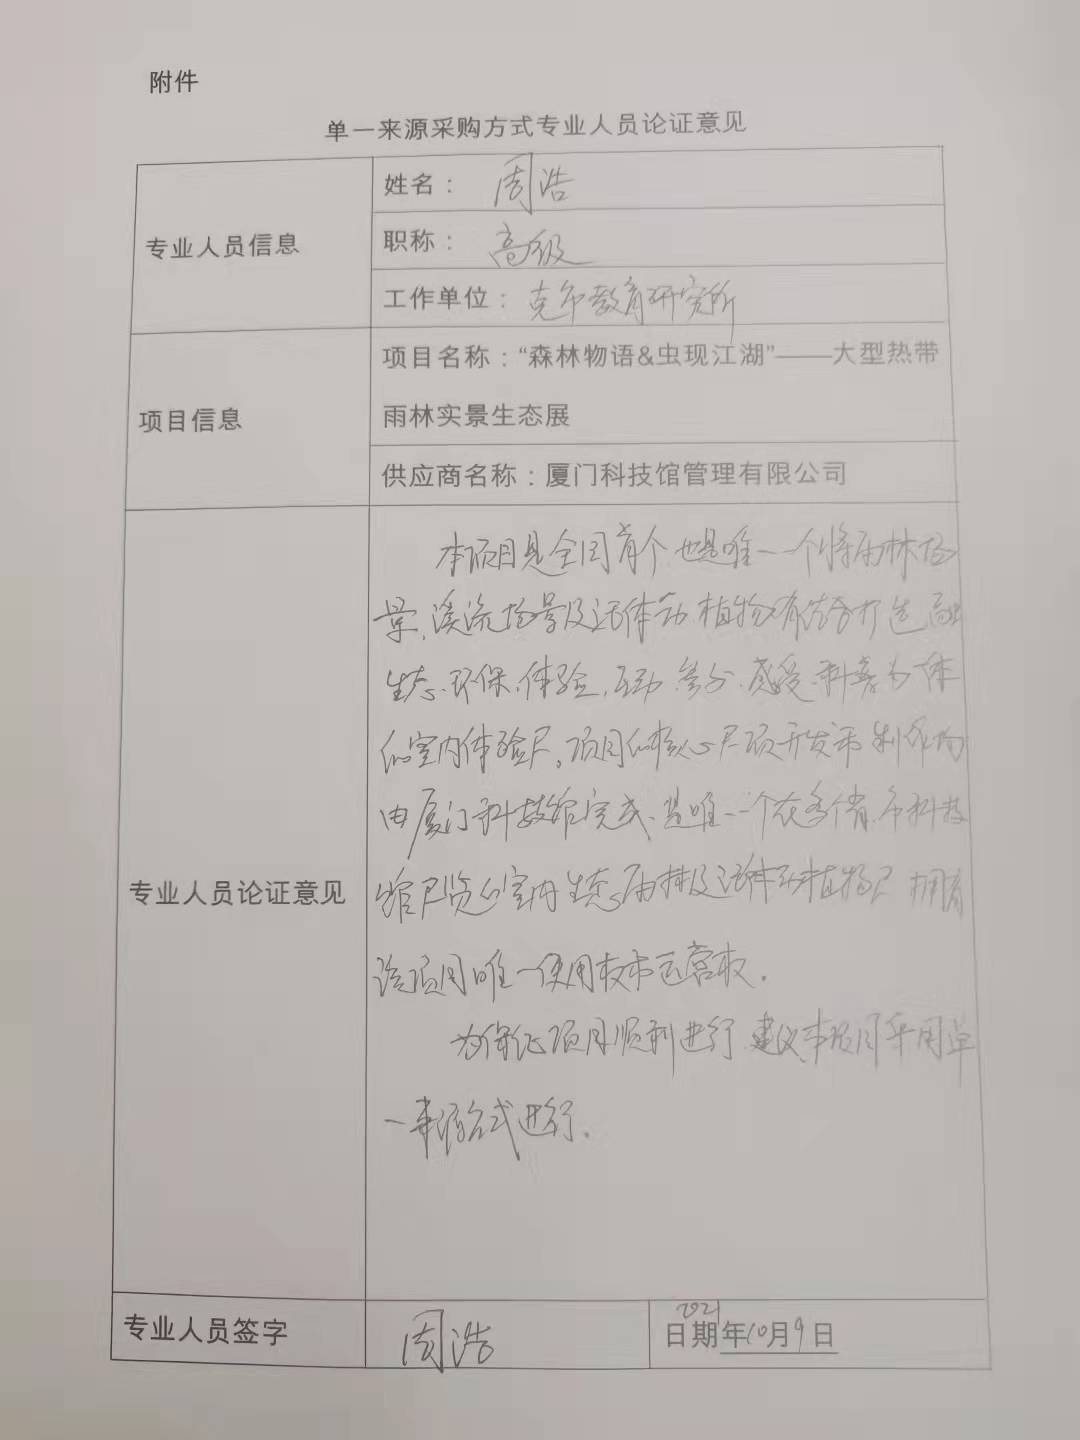 附件
单一来源采购方式专业人员论证意见
专业人员信息
姓名：周浩
职称：高级
工作单位：克尔教育研究所
项目信息
项目名称：“森林物语&虫现江湖”——大型热带
雨林实景生态展
供应商名称：厦门科技馆管理有限公司
专业人员论证意见
本项目是全国首个也是唯一一个将雨林场
景、溪流场景及活体动植物有结合打造
生态、环保、体验、互动、参与、感受、科普为一体
的室内体验展。项目的核心展项开发和制作均
由厦门科技馆完成、是唯一一个在多个省、市科技
馆展览的室内生态雨林及活体动植物展 拥有
该项目唯一使用权和运营权。
为保证项目顺利进行、建议本项目采用单
一来源方式进行.
专业人员签字
周浩
2021
日期年10月9日